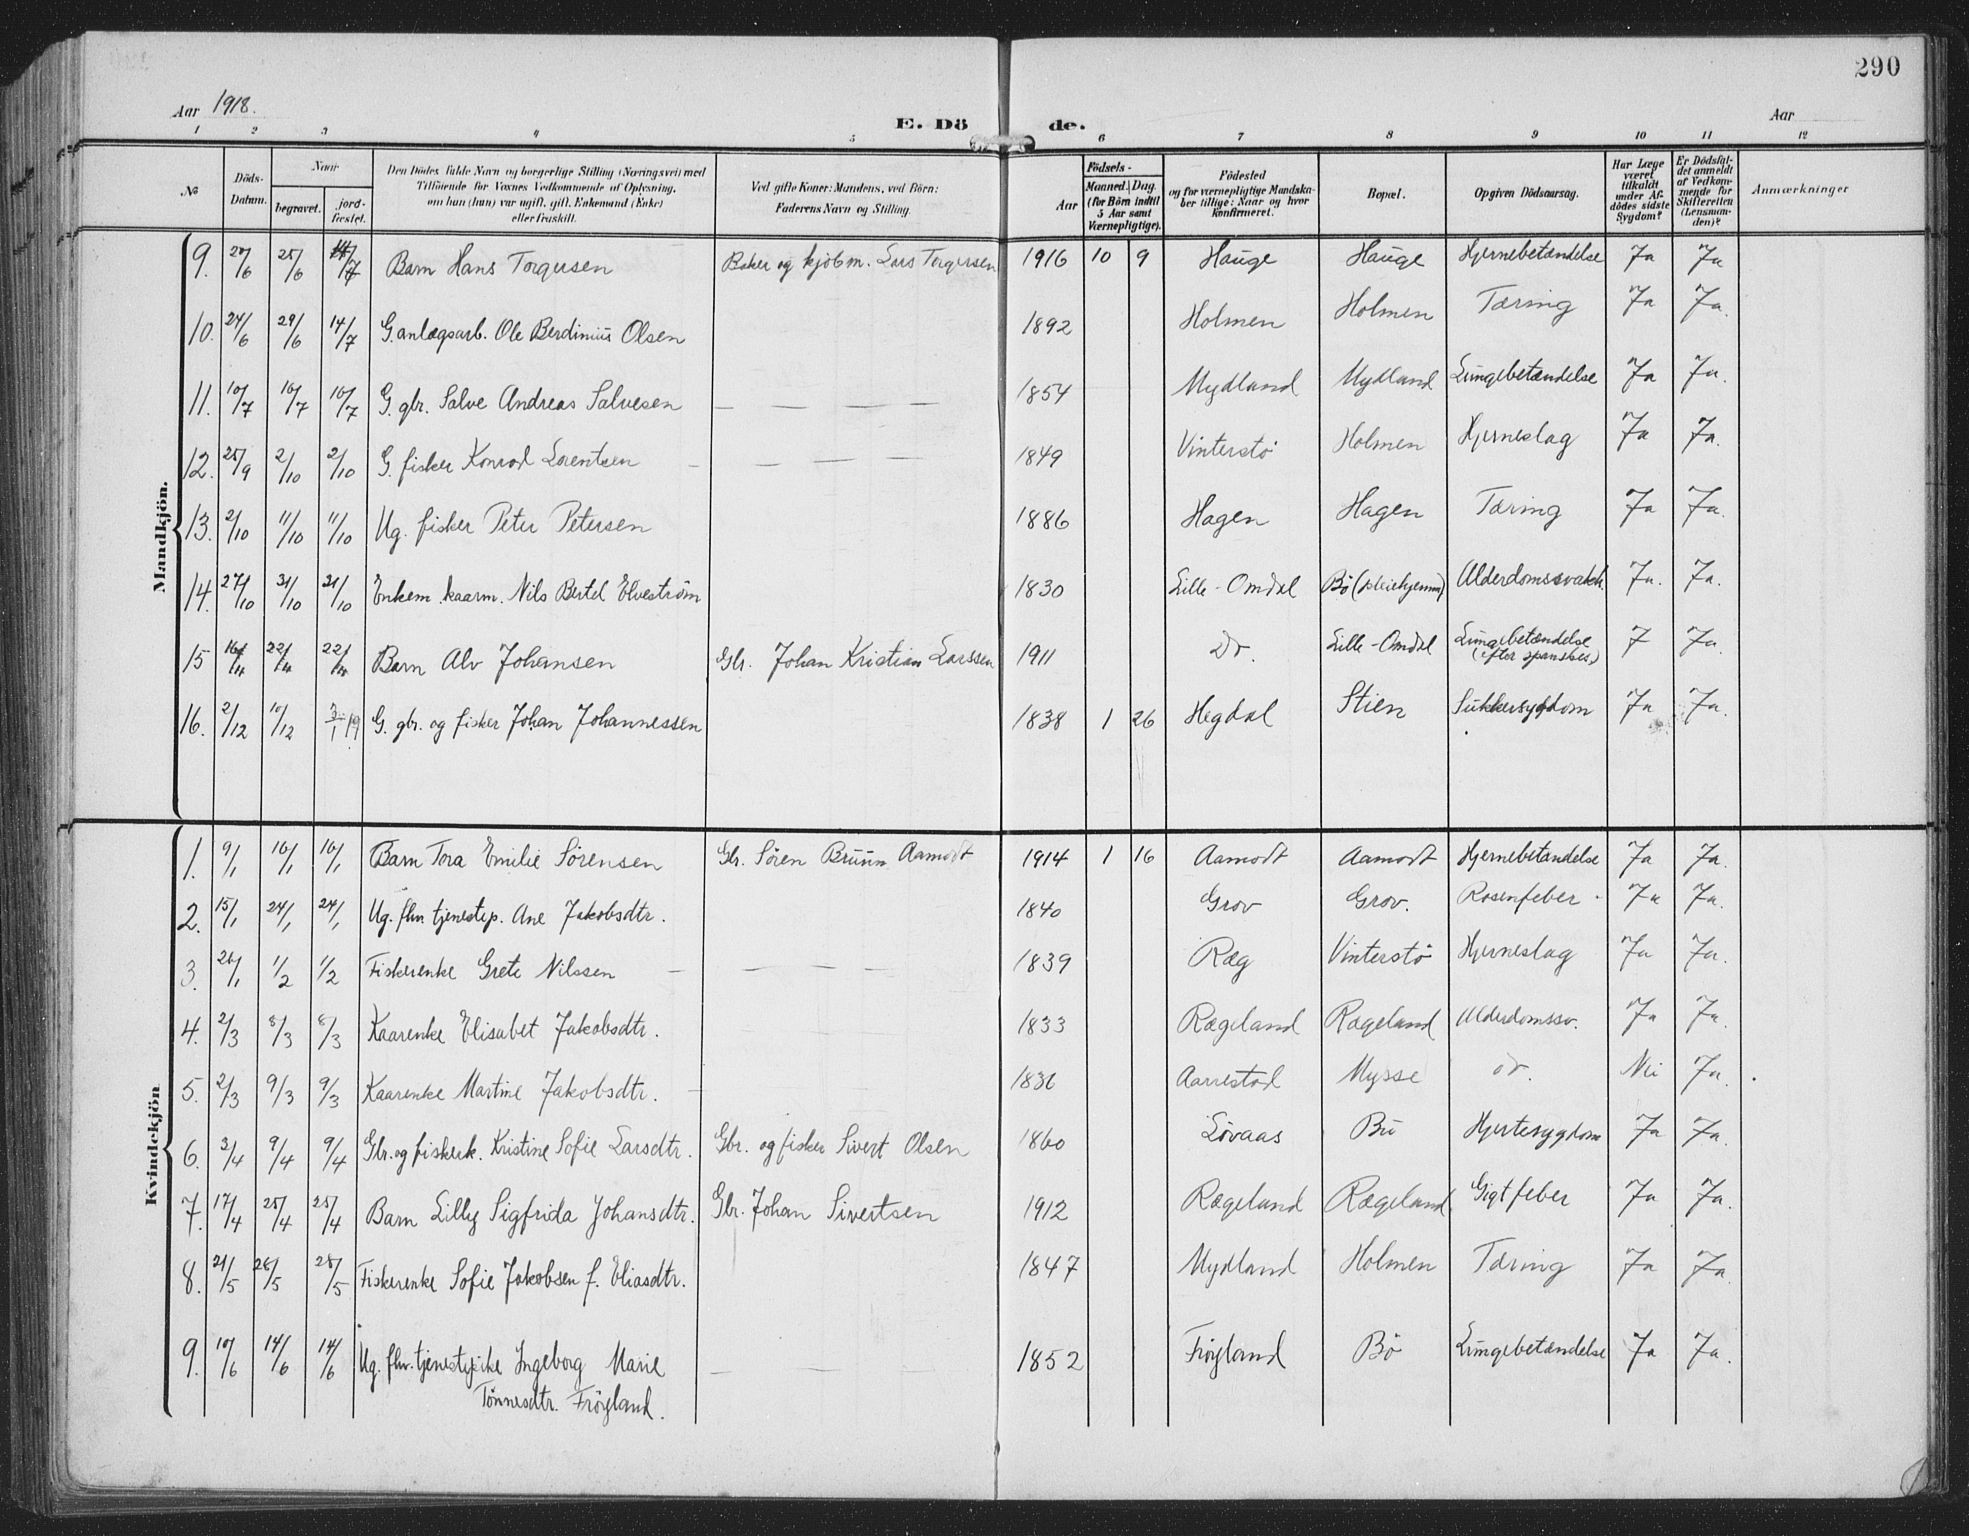 290
Aar 1918.
E. Dö de.
Aar
1 2 3 4 5 6 7 8 9 10 11 12
№
Döds-Datum.
Naar
begravet.
jordfæstet.
Den Dödes fulde Navn og borgerlige Stilling (Næringsvei) med
Tilföiende for Voxnes Vedkommende af Oplysning,
om han (hun) var ugift, gift, Enkemand (Enke)
eller fraskilt.
Ved gifte Koner: Mandens, ved Börn:
Faderens Navn og Stilling.
Födsels-
Aar
Maaned. Dag.
(for Börn indtil
5 Aar samt
Værnepligtige).
Födested
og for værnepligtige Mandska-
ber tillige: Naar og hvor
konfirmeret.
Bopæl.
Opgiven Dödsaarsag.
Har Læge
været
tilkaldt
under Af-
dödes sidste
Sygdom?
Er Dödsfal-
det anmeldt
af Vedkom-
mende for
Skifteretten
(Lensman-
den)?
Anmærkninger
Mandkjön.
9. 25/6 Barn Hans Torgersen Baker og kjöbm. Lars Torgersen 1916 10 9 Hauge Hauge Hjernebetændelse Ja Ja
10. 24/6 29/6 14/7 G. anlægsarb. Ole Berdinius Olsen 1892 Holmen Holmen Tæring Ja Ja.
11. 10/7 16/7 16/7 G. gbr. Salve Andreas Salvesen — — — — 1854 Mydland Mydland Lungebetændelse Ja Ja.
12. 25/9 2/10 2/10 G. fisker Konrad Lorentsen — — — — 1849 Vinterstö Holmen Hjerneslag Ja Ja.
13. 2/10 11/10 11/10 Ug. fisker Peter Petersen 1886 Hagen Hagen Tæring Ja Ja.
14. 27/10 31/10 31/10 Enkem. kaarm. Nils Bertel Elveström 1830 Lille-Omdal Bö (pleiehjemm) Alderdomssvakh. Ja. Ja.
15 22/11 22/11 Barn Alv Johansen Gbr. Johan Kristian Larssen 1911 Do. Lille-Omdal Lungebetændelse J Ja.
(efter spanskes.)
16. 2/12 10/12 3/1 19 G. gbr. og fisker Johan Johannessen 1838 1 26 Hegdal Stien Sukkersygdom Ja Ja.
Kvindekjön
1. 9/1 16/1 16/1 Barn Tora Emilie Sörensen Gbr. Sören Bruun Aamodt 1914 1 16 Aamodt Aamodt Hjernebetændelse Ja Ja.
2. 15/1 24/1 24/1 Ug. fhv. tjenestep. Ane Jakobsdtr. 1840 Grov Grov. Rosenfeber Ja Ja.
3. 26/1 1/2 1/2 Fiskerenke Grete Nilssen — — — — 1839 Ræg Vinterstö Hjerneslag Ja Ja.
4. 2/3 8/3 8/3 Kaarenke Elisabet Jakobsdtr. 1833 Rægeland Rægeland Alderdomssv. Ja Ja.
5. 2/3 9/3 9/3 Kaarenke Martine Jakobsdtr. 1836 Aarrestad Mysse do. Nei Ja.
6. 3/4 9/4 9/4 Gbr. og fiskerk. Kristine Sofie Larsdtr. Gbr. og fisker Sivert Olsen 1860 Lövaas Bu Hjertesygdom Ja Ja.
7. 17/4 25/4 25/4 Barn Lilly Sigfrida Johansdtr. Gbr. Johan Sivertsen 1912 Rægeland Rægeland Gigtfeber Ja Ja.
8. 21/5 28/5 28/5 Fiskerenke Sofie Jakobsen f. Eliasdtr. 1847 Mydland Holmen Tæring Ja Ja.
9. 10/6 14/6 14/6 Ug. fhv. tjenestepike Ingeborg Marie — — — — 1852 Fröyland Bö Lungebetændelse Ja Ja.
Tönnesdtr. Fröyland.